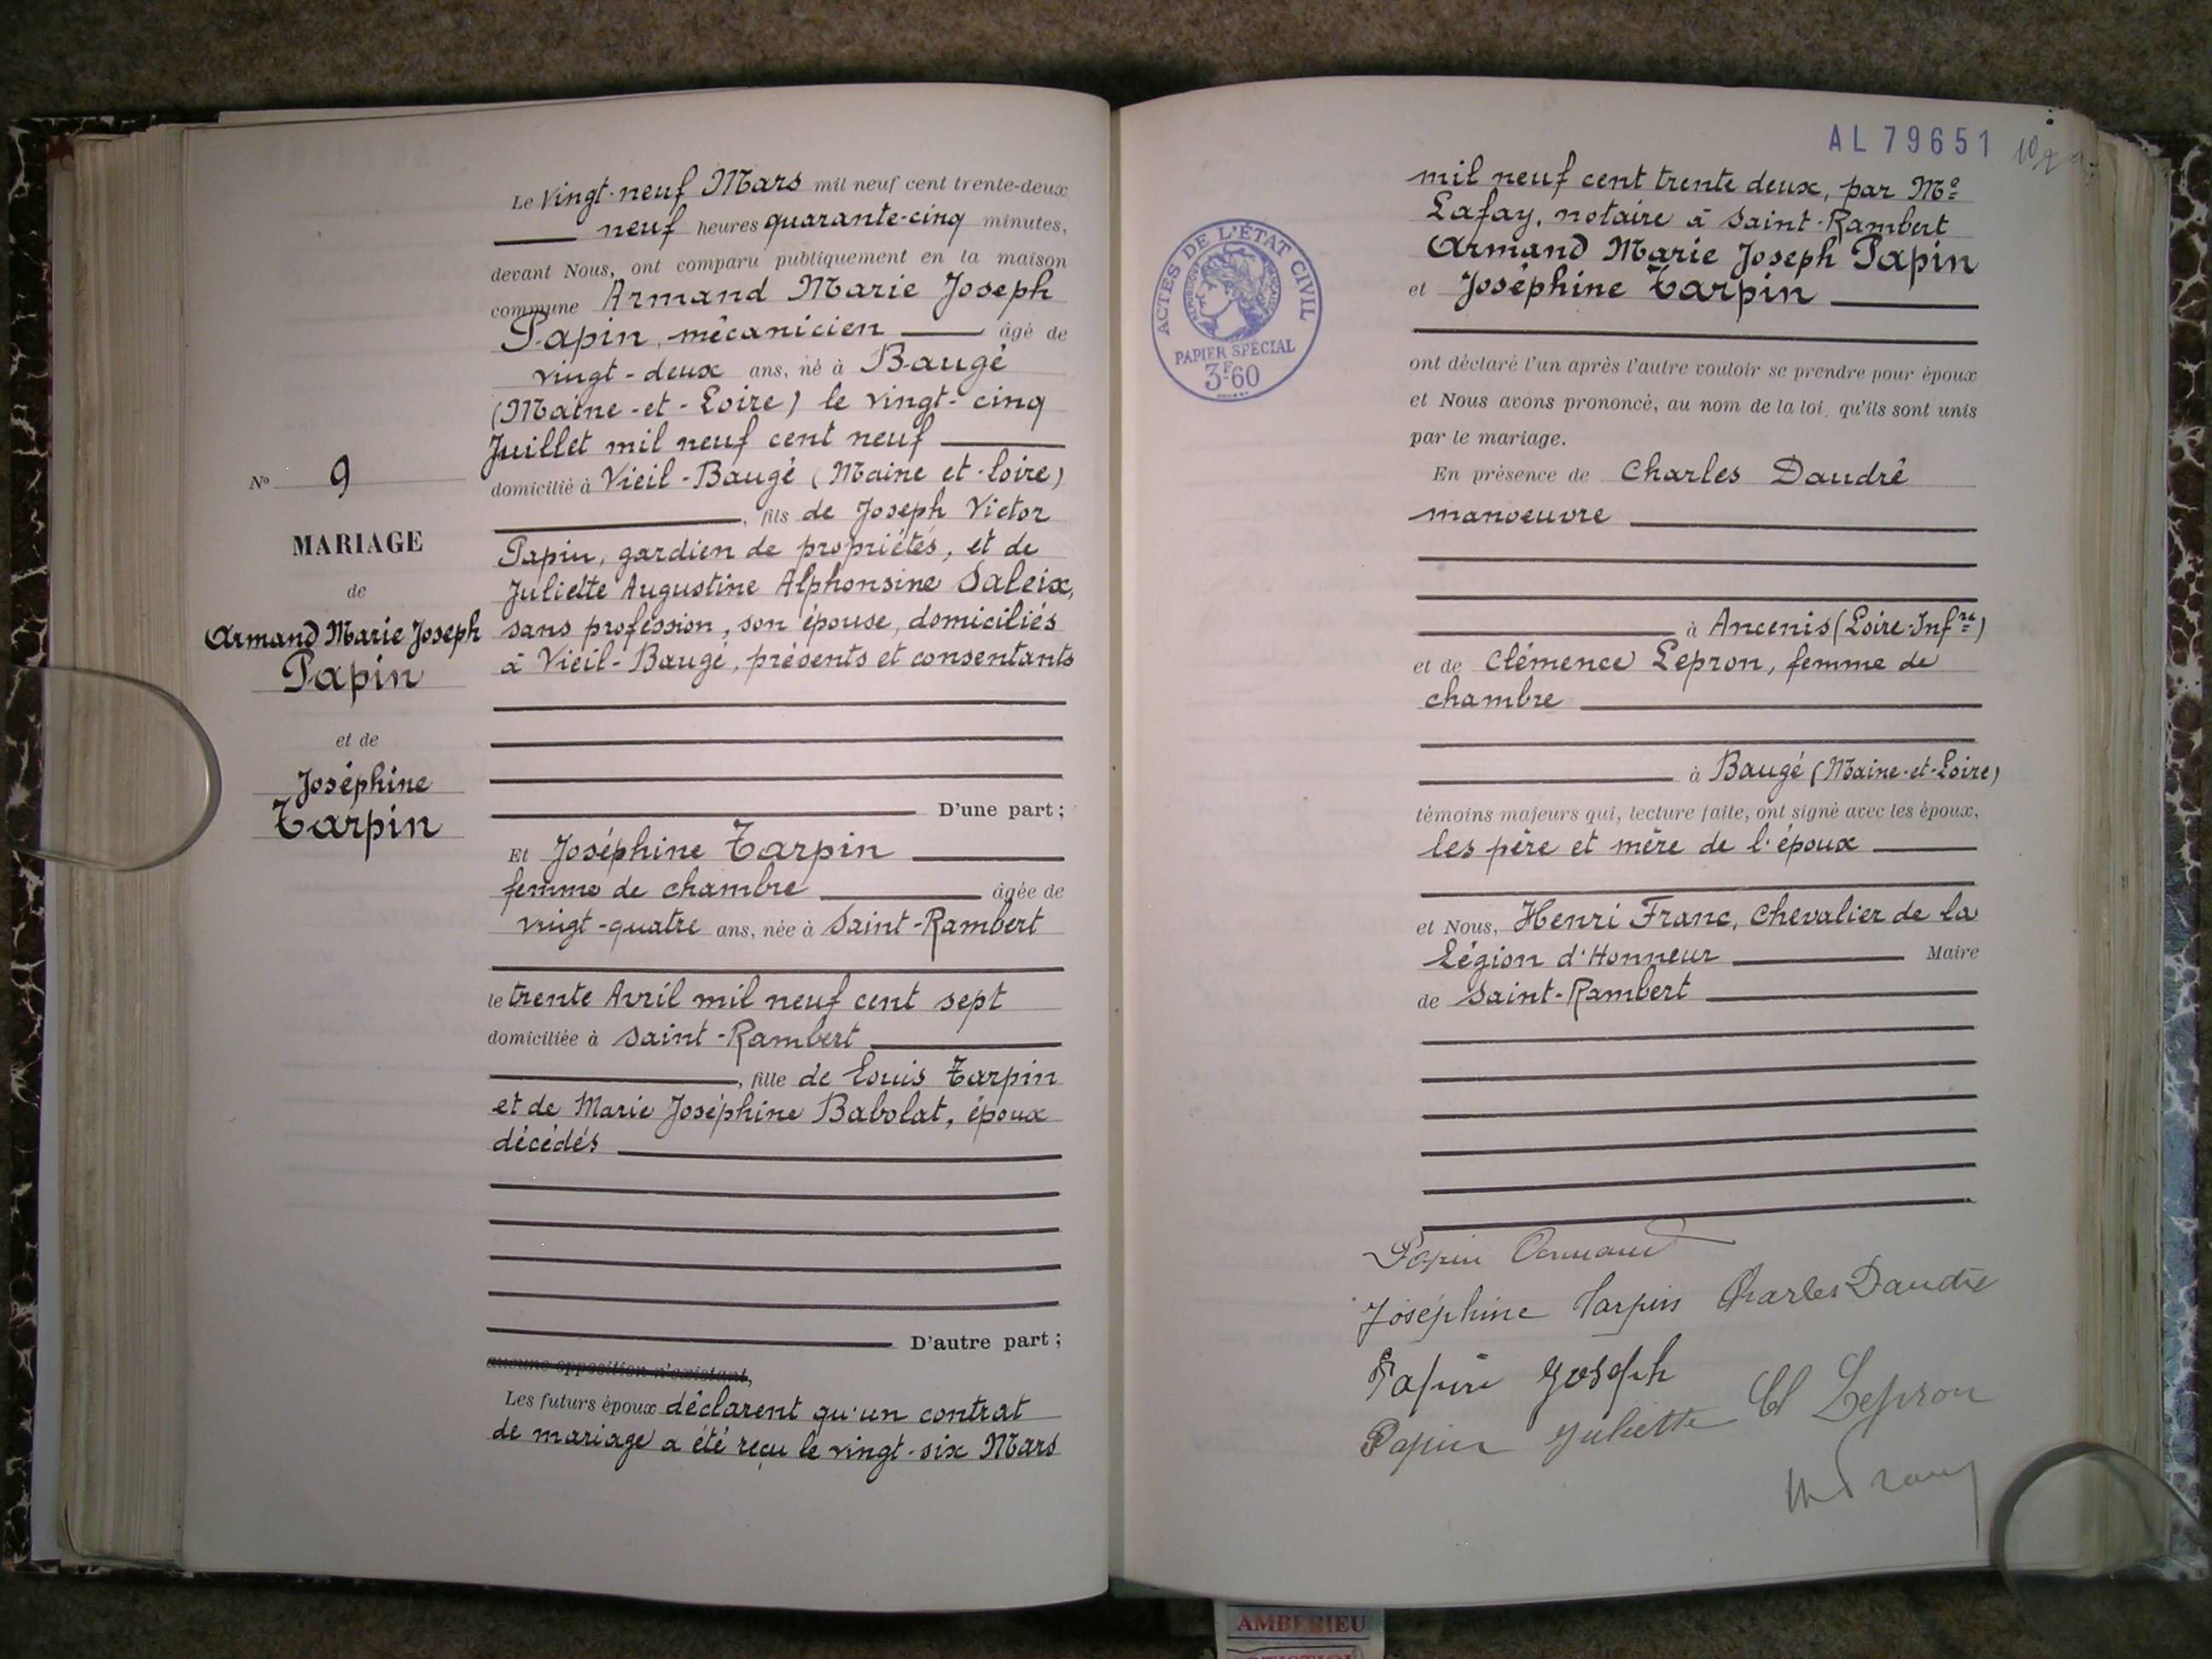 N° 9
MARIAGE
de
Armand Marie Joseph
Papin
et de
Joséphine
Tarpin
Le vingt-neuf Mars mil neuf cent trente-deux
neuf heures quarante-cinq minutes,
devant Nous, ont comparu publiquement en la maison
commune Armand Marie Joseph
Papin, mécanicien âgé de
vingt-deux ans, né à Baugé
(Maine-et-Loire) le vingt-cinq
Juillet mil neuf cent neuf
domicilié à Vieil-Baugé (Maine et-Loire)
, fils de Joseph Victor
Papin, gardien de propriétés, et de
Juliette Augustine Alphonsine Saleix,
sans profession, son épouse, domiciliés
à Vieil-Baugé, présents et consentants
D'une part ;
Et Joséphine Tarpin
femme de chambre âgée de
vingt-quatre ans, née à Saint-Rambert
le trente Avril mil neuf cent sept
domiciliée à Saint-Rambert
, fille de Louis Tarpin
et de Marie Joséphine Babolat, époux
décédés
D'autre part ;
aucune opposition n'existant,
Les futurs époux déclarent qu'un contrat
de mariage a été reçu le vingt-six Mars
AL 79651
ACTES DE L'ÉTAT CIVIL
REPUBLIQUE FRANÇAISE
PAPIER SPÉCIAL
3F60
mil neuf cent trente deux, par Me
Lafay, notaire à Saint-Rambert
Armand Marie Joseph Papin
et Joséphine Tarpin
ont déclaré l'un après l'autre vouloir se prendre pour époux
et Nous avons prononcé, au nom de la loi, qu'ils sont unis
par le mariage.
En présence de Charles Daudré
manoeuvre
à Ancenis (Loire-Infre)
et de Clémence Lepron, femme de
chambre
à Baugé (Maine-et-Loire)
témoins majeurs qui, lecture faite, ont signé avec les époux,
les père et mère de l'époux
et Nous, Henri Franc, Chevalier de la
Légion d'Honneur Maire
de Saint-Rambert
Papin Armand
Joséphine Tarpin Charles Daudré
Papin Joseph
Papin Juliette Cl Lepron
H Franc
AMBERIEU